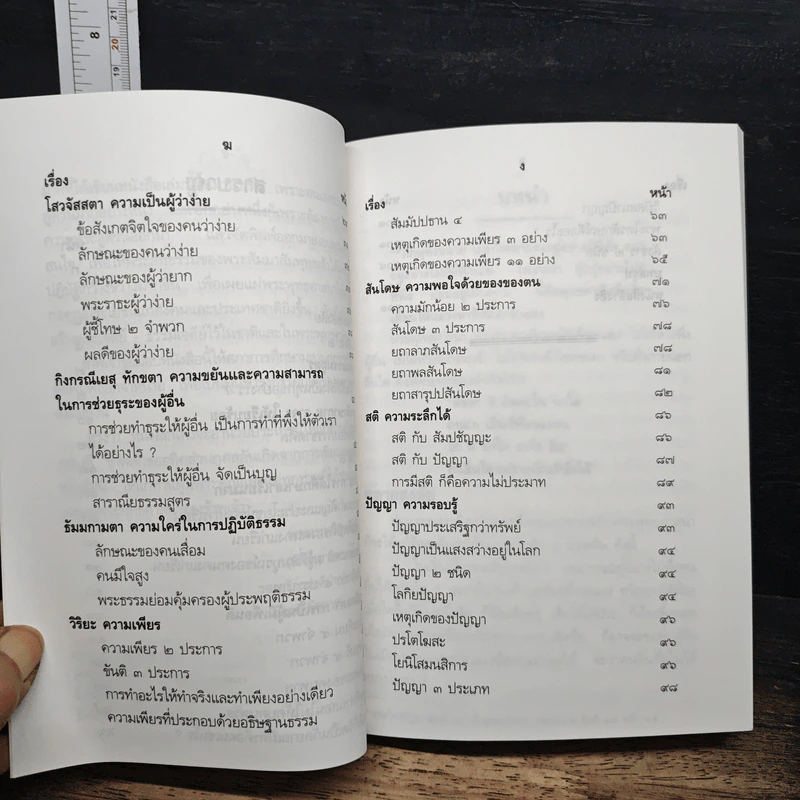 ฆ
เรื่อง
โสวจัสสตา ความเป็นผู้ว่าง่าย
ข้อสังเกตจิตใจของคนว่าง่าย
ลักษณะของคนว่าง่าย
ลักษณะของผู้ว่ายาก
พระราธะผู้ว่าง่าย
ผู้ชี้โทษ ๒ จำพวก
ผลดีของผู้ว่าง่าย
กิงกรณีเยสุ ทักขตา ความขยันและความสามารถ
ในการช่วยธุระของผู้อื่น
การช่วยทำธุระให้ผู้อื่น เป็นการทำที่พึ่งให้ตัวเรา
ได้อย่างไร ?
การช่วยทำธุระให้ผู้อื่น จัดเป็นบุญ
สาราณียธรรมสูตร
ธัมมกามตา ความใคร่ในการปฏิบัติธรรม
ลักษณะของคนเสื่อม
คนมีใจสูง
พระธรรมย่อมคุ้มครองผู้ประพฤติธรรม
วิริยะ ความเพียร
ความเพียร ๒ ประการ
ขันติ ๓ ประการ
การทำอะไรให้ทำจริงและทำเพียงอย่างเดียว
ความเพียรที่ประกอบด้วยอธิษฐานธรรม
ง
เรื่อง หน้า
สัมมัปปธาน ๔ ๖๓
เหตุเกิดของความเพียร ๓ อย่าง ๖๓
เหตุเกิดของความเพียร ๑๑ อย่าง ๖๕
สันโดษ ความพอใจด้วยของของตน ๗๑
ความมักน้อย ๒ ประการ ๗๖
สันโดษ ๓ ประการ ๗๘
ยถาลาภสันโดษ ๗๘
ยถาพลสันโดษ ๘๑
ยถาสารุปปสันโดษ ๘๒
สติ ความระลึกได้ ๘๖
สติ กับ สัมปชัญญะ ๘๖
สติ กับ ปัญญา ๘๗
การมีสติ ก็คือความไม่ประมาท ๘๙
ปัญญา ความรอบรู้ ๙๓
ปัญญาประเสริฐกว่าทรัพย์ ๙๓
ปัญญาเป็นแสงสว่างอยู่ในโลก ๙๔
ปัญญา ๒ ชนิด ๙๔
โลกิยปัญญา ๙๔
เหตุเกิดของปัญญา ๙๖
ปรโตโฆสะ ๙๖
โยนิโสมนสิการ ๙๖
ปัญญา ๓ ประเภท ๙๘
8
21
20
19